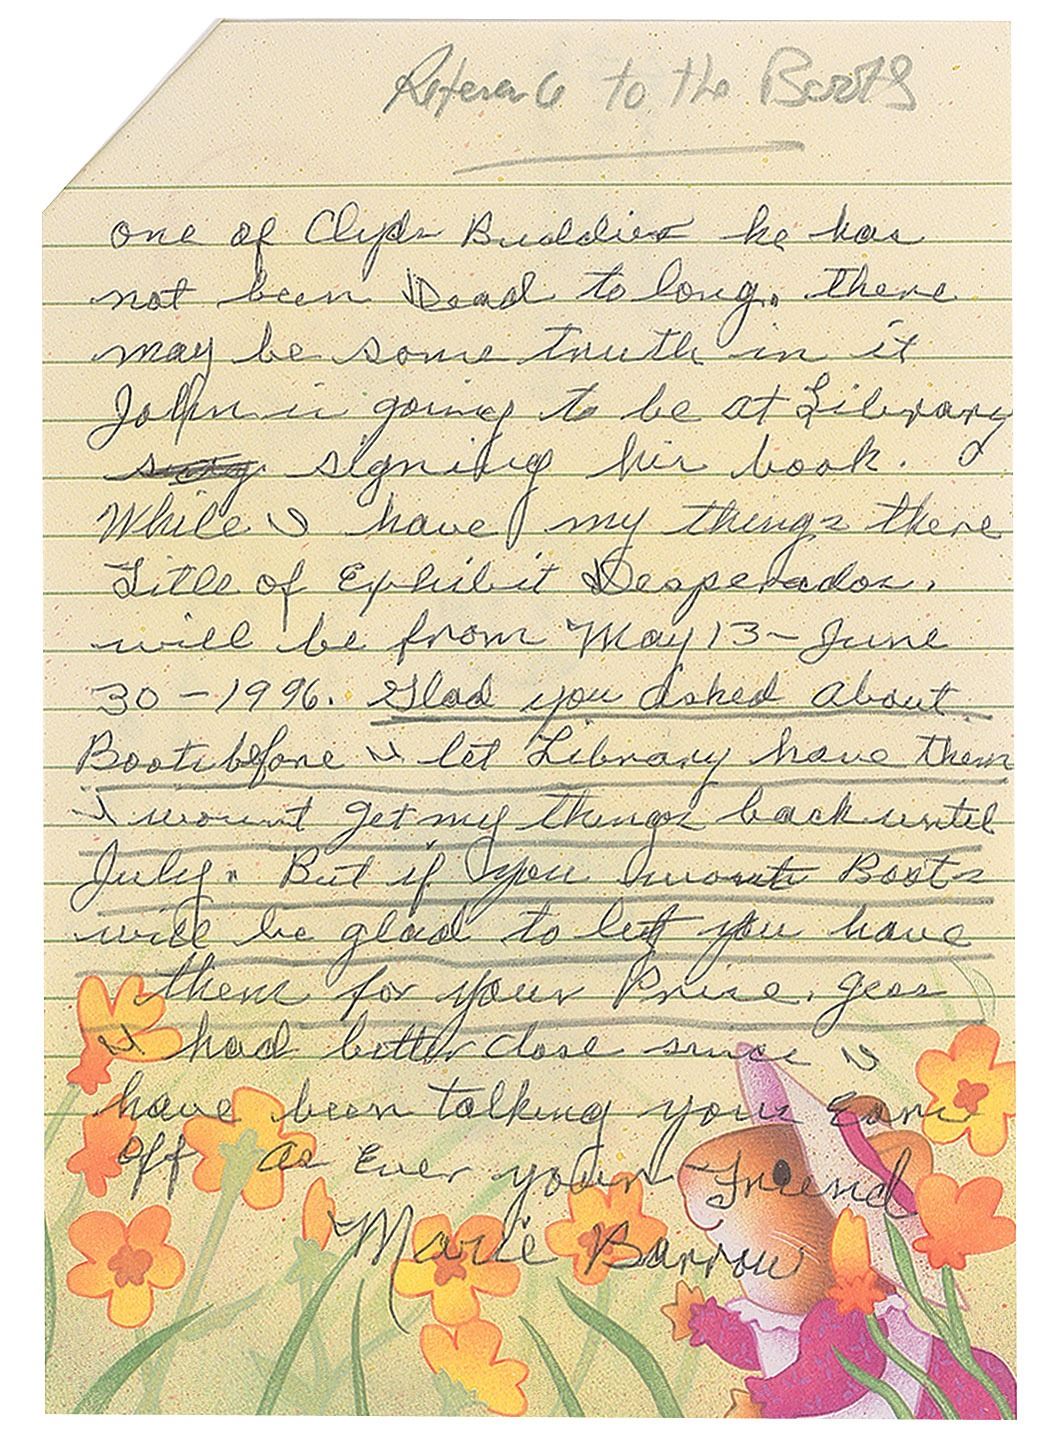 Reference to the Boots
one of Clyde Buddies he has
not been Dead to long. there
may be some truth in it
John is going to be at Library
signing his book.
While I have my things there
Title of Exhibit Desperados.
will be from May 13 - June
30 - 1996. Glad you asked about
Boots before I let Library have them
I wount get my things back until
July. But if you want Boots
will be glad to let you have
them for your Price. gess
I had better close since I
have been talking your Ears
off as Ever your Friend
Marie Barrow